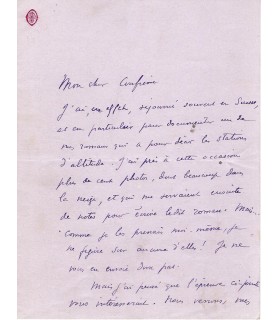 Mon cher Confrère
J'ai, en effet, séjourné souvent en Suisse,
et en particulier pour documenter un de
mes romans qui a pour décor les stations
d'altitude. J'ai pris à cette occasion
plus de cent photos, dont beaucoup dans
la neige, et qui me servaient ensuite
de notes pour écrire le dit roman. Mais
comme je les prenais moi-même, je
ne figure sur aucune d'elles ! Je ne
vous en envoie donc pas.
Mais j'ai pensé que l'épreuve ci-jointe
vous intéresserait. Nous venons, mes